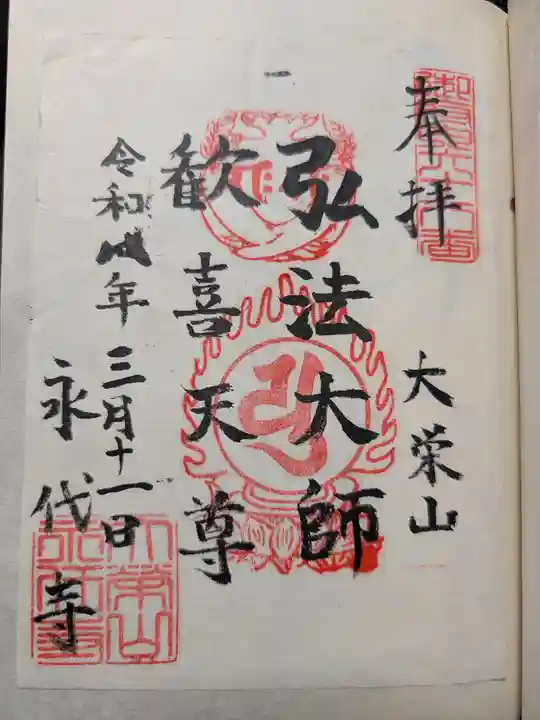 奉拝
大栄山
一
弘法大師
歓喜天尊
令和 年 三月十一日
永代寺
大栄山
永代寺